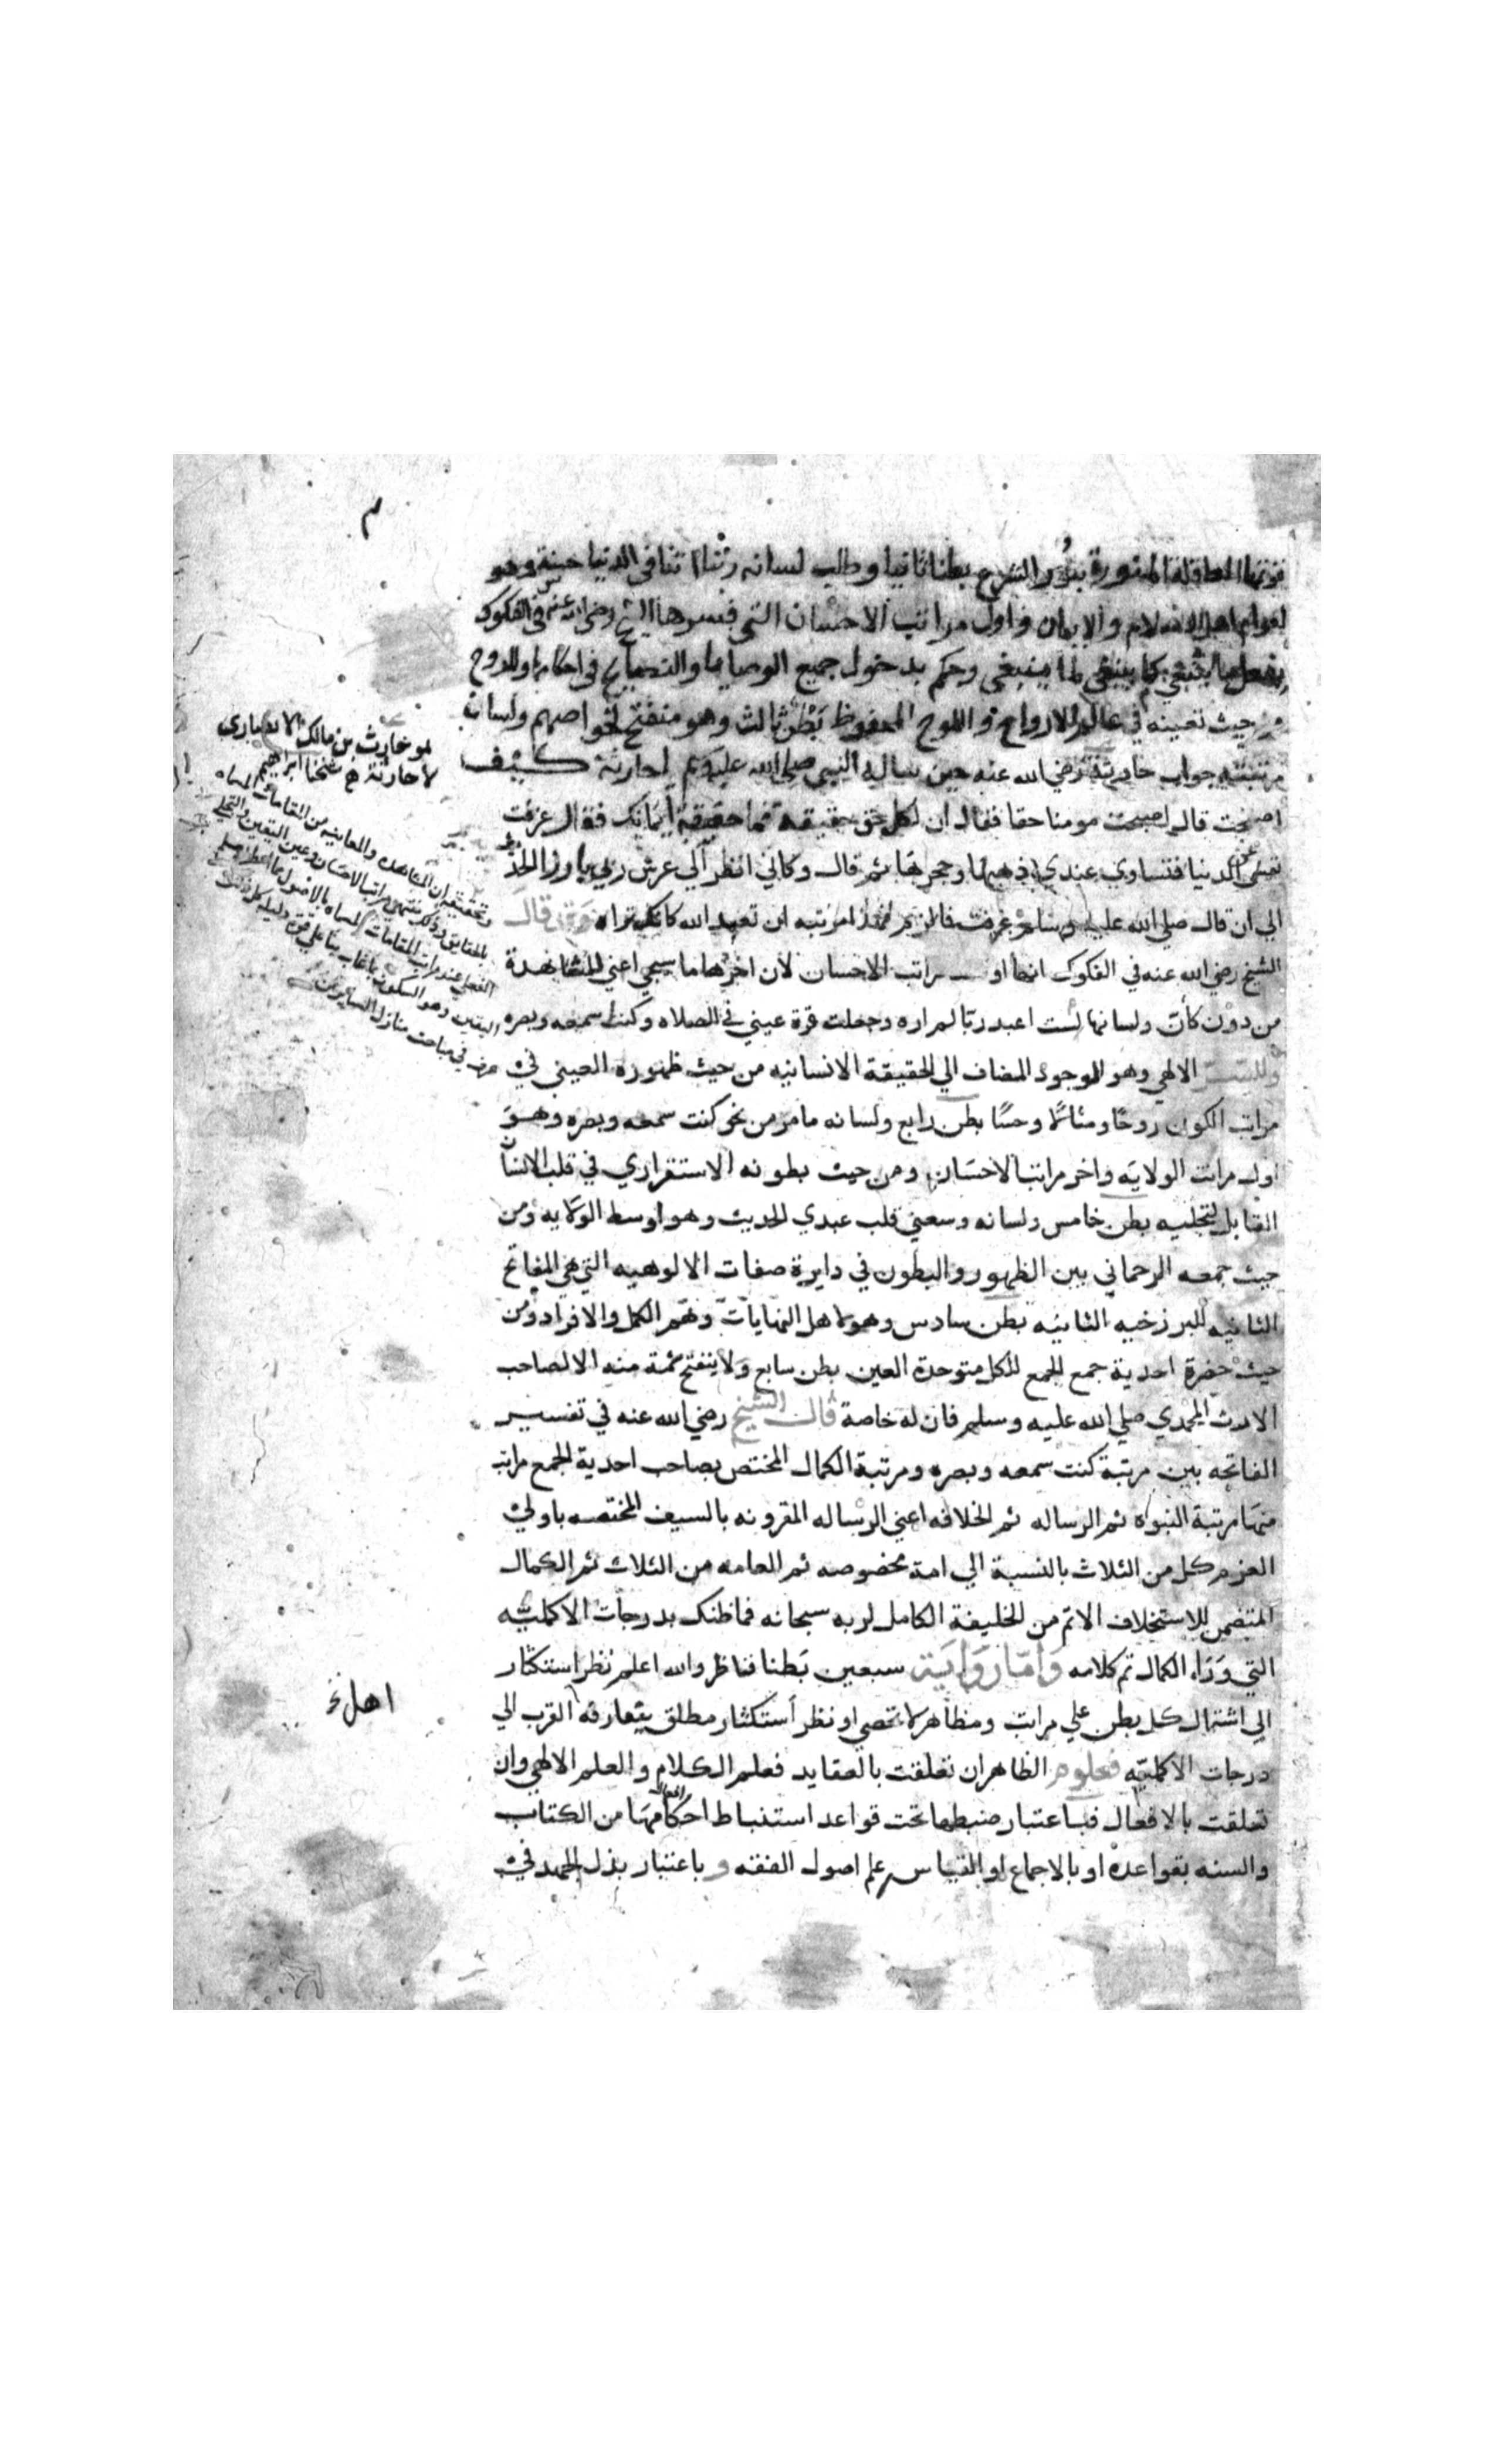 قوتها العاقلة المنورة بنور الشرع بطنا ثانيا وطلب لسانه ربنا اتنا في الدنيا حسنة وهو
لعوام اهل الاسلام والايمان واول مراتب الاحسان التي فسرها الشيخ رضي الله عنه في الفكوك
بفعل ما ينبغي كما ينبغي لما ينبغي وحكم بدخول جميع الوصايا والنصايح في احكامها وللروح
من حيث تعينه في عالم الارواح واللوح المحفوظ بطن ثالث وهو منفتح لخواصهم ولسان
مرتبته جواب حارثة رضي الله عنه حين ساله النبي صلي الله عليه وسلم يا حارثة كيف
اصبحت قال اصبحت مومنا حقا فقال ان لكل حق حقيقة فما حقيقة ايمانك فقال عزفت
نفسي عن الدنيا فتساوي عندي ذهبها وحجرها ثم قال وكاني انظر الي عرش ربي بارزا الحديث
الي ان قال صلي الله عليه وسلم عرفت فالزم فهذا مرتبه ان تعبد الله كانك تراه وقد قال
الشيخ رضي الله عنه في الفكوك انها اوسط مراتب الاحسان لان اخرها ما سيجي اعني المشاهدة
من دون كأن ولسانها لست اعبد ربا لم اره وجعلت قرة عيني في الصلاه وكنت سمعه وبصره
وللسر الالهي وهو الوجود المضاف الي الحقيقة الانسانيه من حيث ظهوره العيني في
مراتب الكون روحا ومثالا وحسا بطن رابع ولسانه ما مر من نحو كنت سمعه وبصره وهو
اول مراتب الولايه واخر مراتب الاحسان ومن حيث بطونه الاستقراري في قلب الانسان
القابل لتجليه بطن خامس ولسانه وسعني قلب عبدي الحديث وهو اوسط الولايه ومن
حيث جمعه الرحماني بين الظهور والبطون في دايرة صفات الالوهيه التي هي المفاتح
الثانيه للبرزخيه الثانيه بطن سادس وهو لاهل النهايات وهم الكمل والافراد ومن
حيث حضرة احدية جمع الجمع للكل متوحدة العين بطن سابع ولا ينفتح شمة منه الا لصاحب
الارث المحمدي صلي الله عليه وسلم فان له خاصة قال الشيخ رضي الله عنه في تفسير
الفاتحه بين مرتبة كنت سمعه وبصره ومرتبة الكمال المختص بصاحب احدية الجمع مراتب
منها مرتبة النبوه ثم الرساله ثم الخلافه اعني الرساله المقرونه بالسيف المختصه باولي
العزم كل من الثلاث بالنسبة الي امة مخصوصه ثم العامه من الثلاث ثم الكمال
المتضمن للاستخلاف الاتم من الخليفة الكامل لربه سبحانه فما ظنك بدرجات الاكمليه
التي وراء الكمال تم كلامه واما رواية سبعين بطنا فناظر والله اعلم نظر استكثار
الي اشتمال كل بطن علي مراتب ومظاهر لا تحصي او نظر استكثار مطلق يتعارفه العرب الي
درجات الاكمليه فعلوم الظاهر ان تعلقت بالعقايد فعلم الكلام والعلم الالهي وان
تعلقت بالافعال فباعتبار ضبطها تحت قواعد استنباط احكامها من الكتاب
والسنه بقواعده او بالاجماع او القياس علم اصول الفقه و باعتبار بذل الجهد في
هو حارث بن مالك الانصاري
لا حارثة شيخنا ابراهيم
وتحقيقه ان المشاهده والمعاينه من المقامات المسماه
بالحقايق